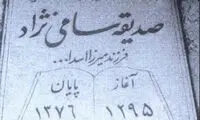 صدیقه سامی نژاد
فرزند میرزا اسدا...
آغاز پایان
۱۲۹۵ ۱۳۷۶